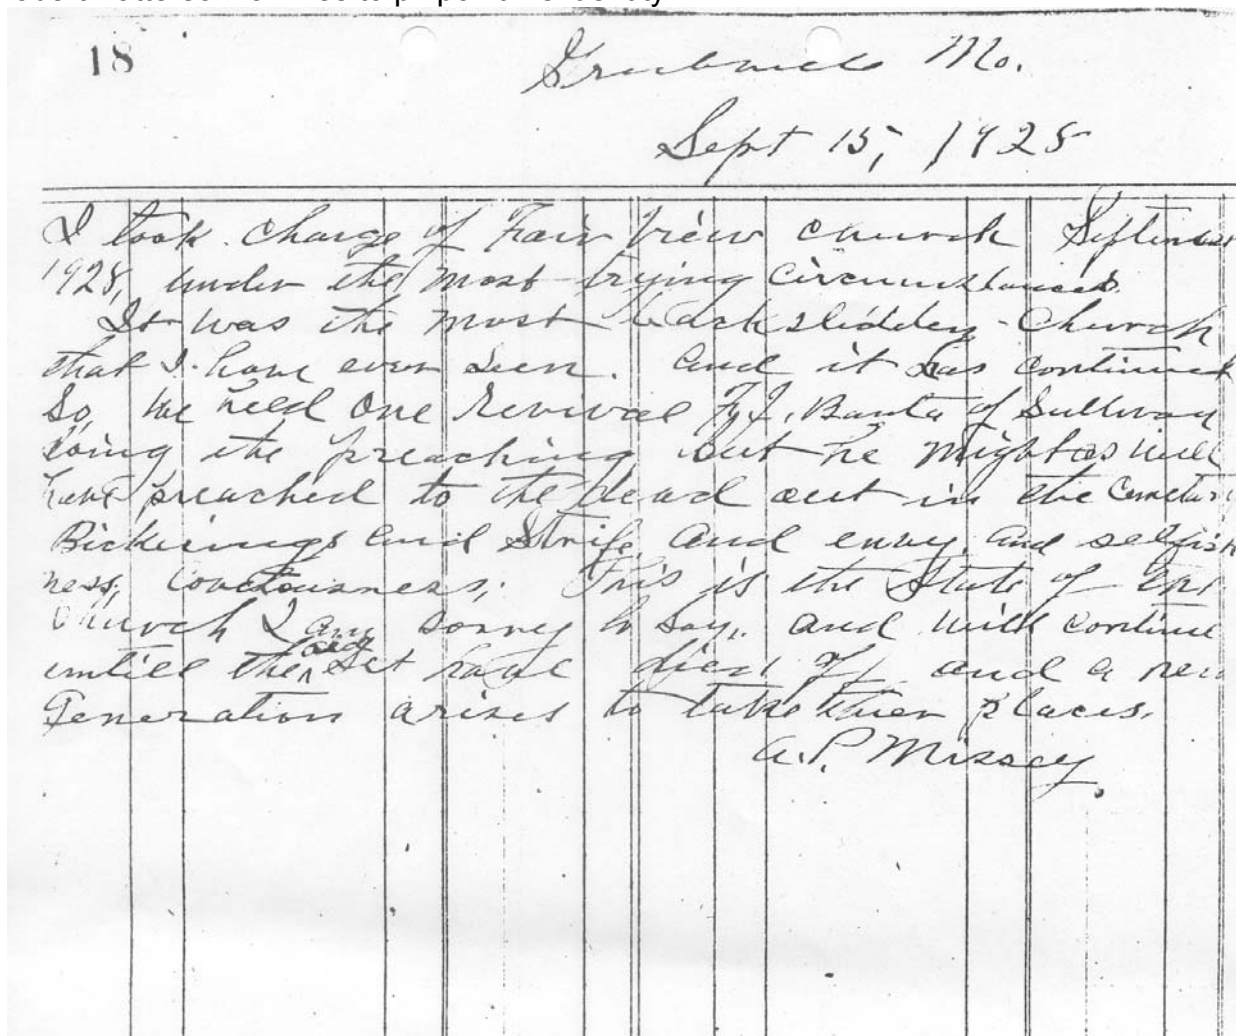 18
Mo.
Sept 15, 1928
I took charge of Fair View church September
1928, under the most trying circumstances.
It was the most backslidden Church
that I have ever seen. and it has continued
So, we held one Revival F. J. Banta of Sullivan
doing the preaching but he might as well
have preached to the dead out in the Cemetary
Bickerings and Strife and envy, and selfish
ness, covetousness; This is the State of the
Church I am sorry to say, and will continue
untill the old set have died off and a new
Generation arises to take their places.
A. P. Missey